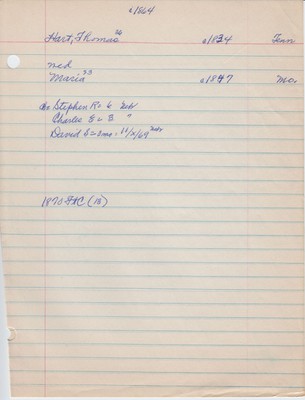 c1864
Hart, Thomas 36 c1834 Tenn
md
Maria 23 c1847 Mo.
ch Stephen R = 6 Nebr
Charles E = 3 "
David S = 7mo = 11/x/69 Nebr
1870 FNC (13)